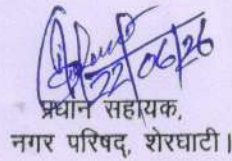 22/06/26
प्रधान सहायक,
नगर परिषद्, शेरघाटी।